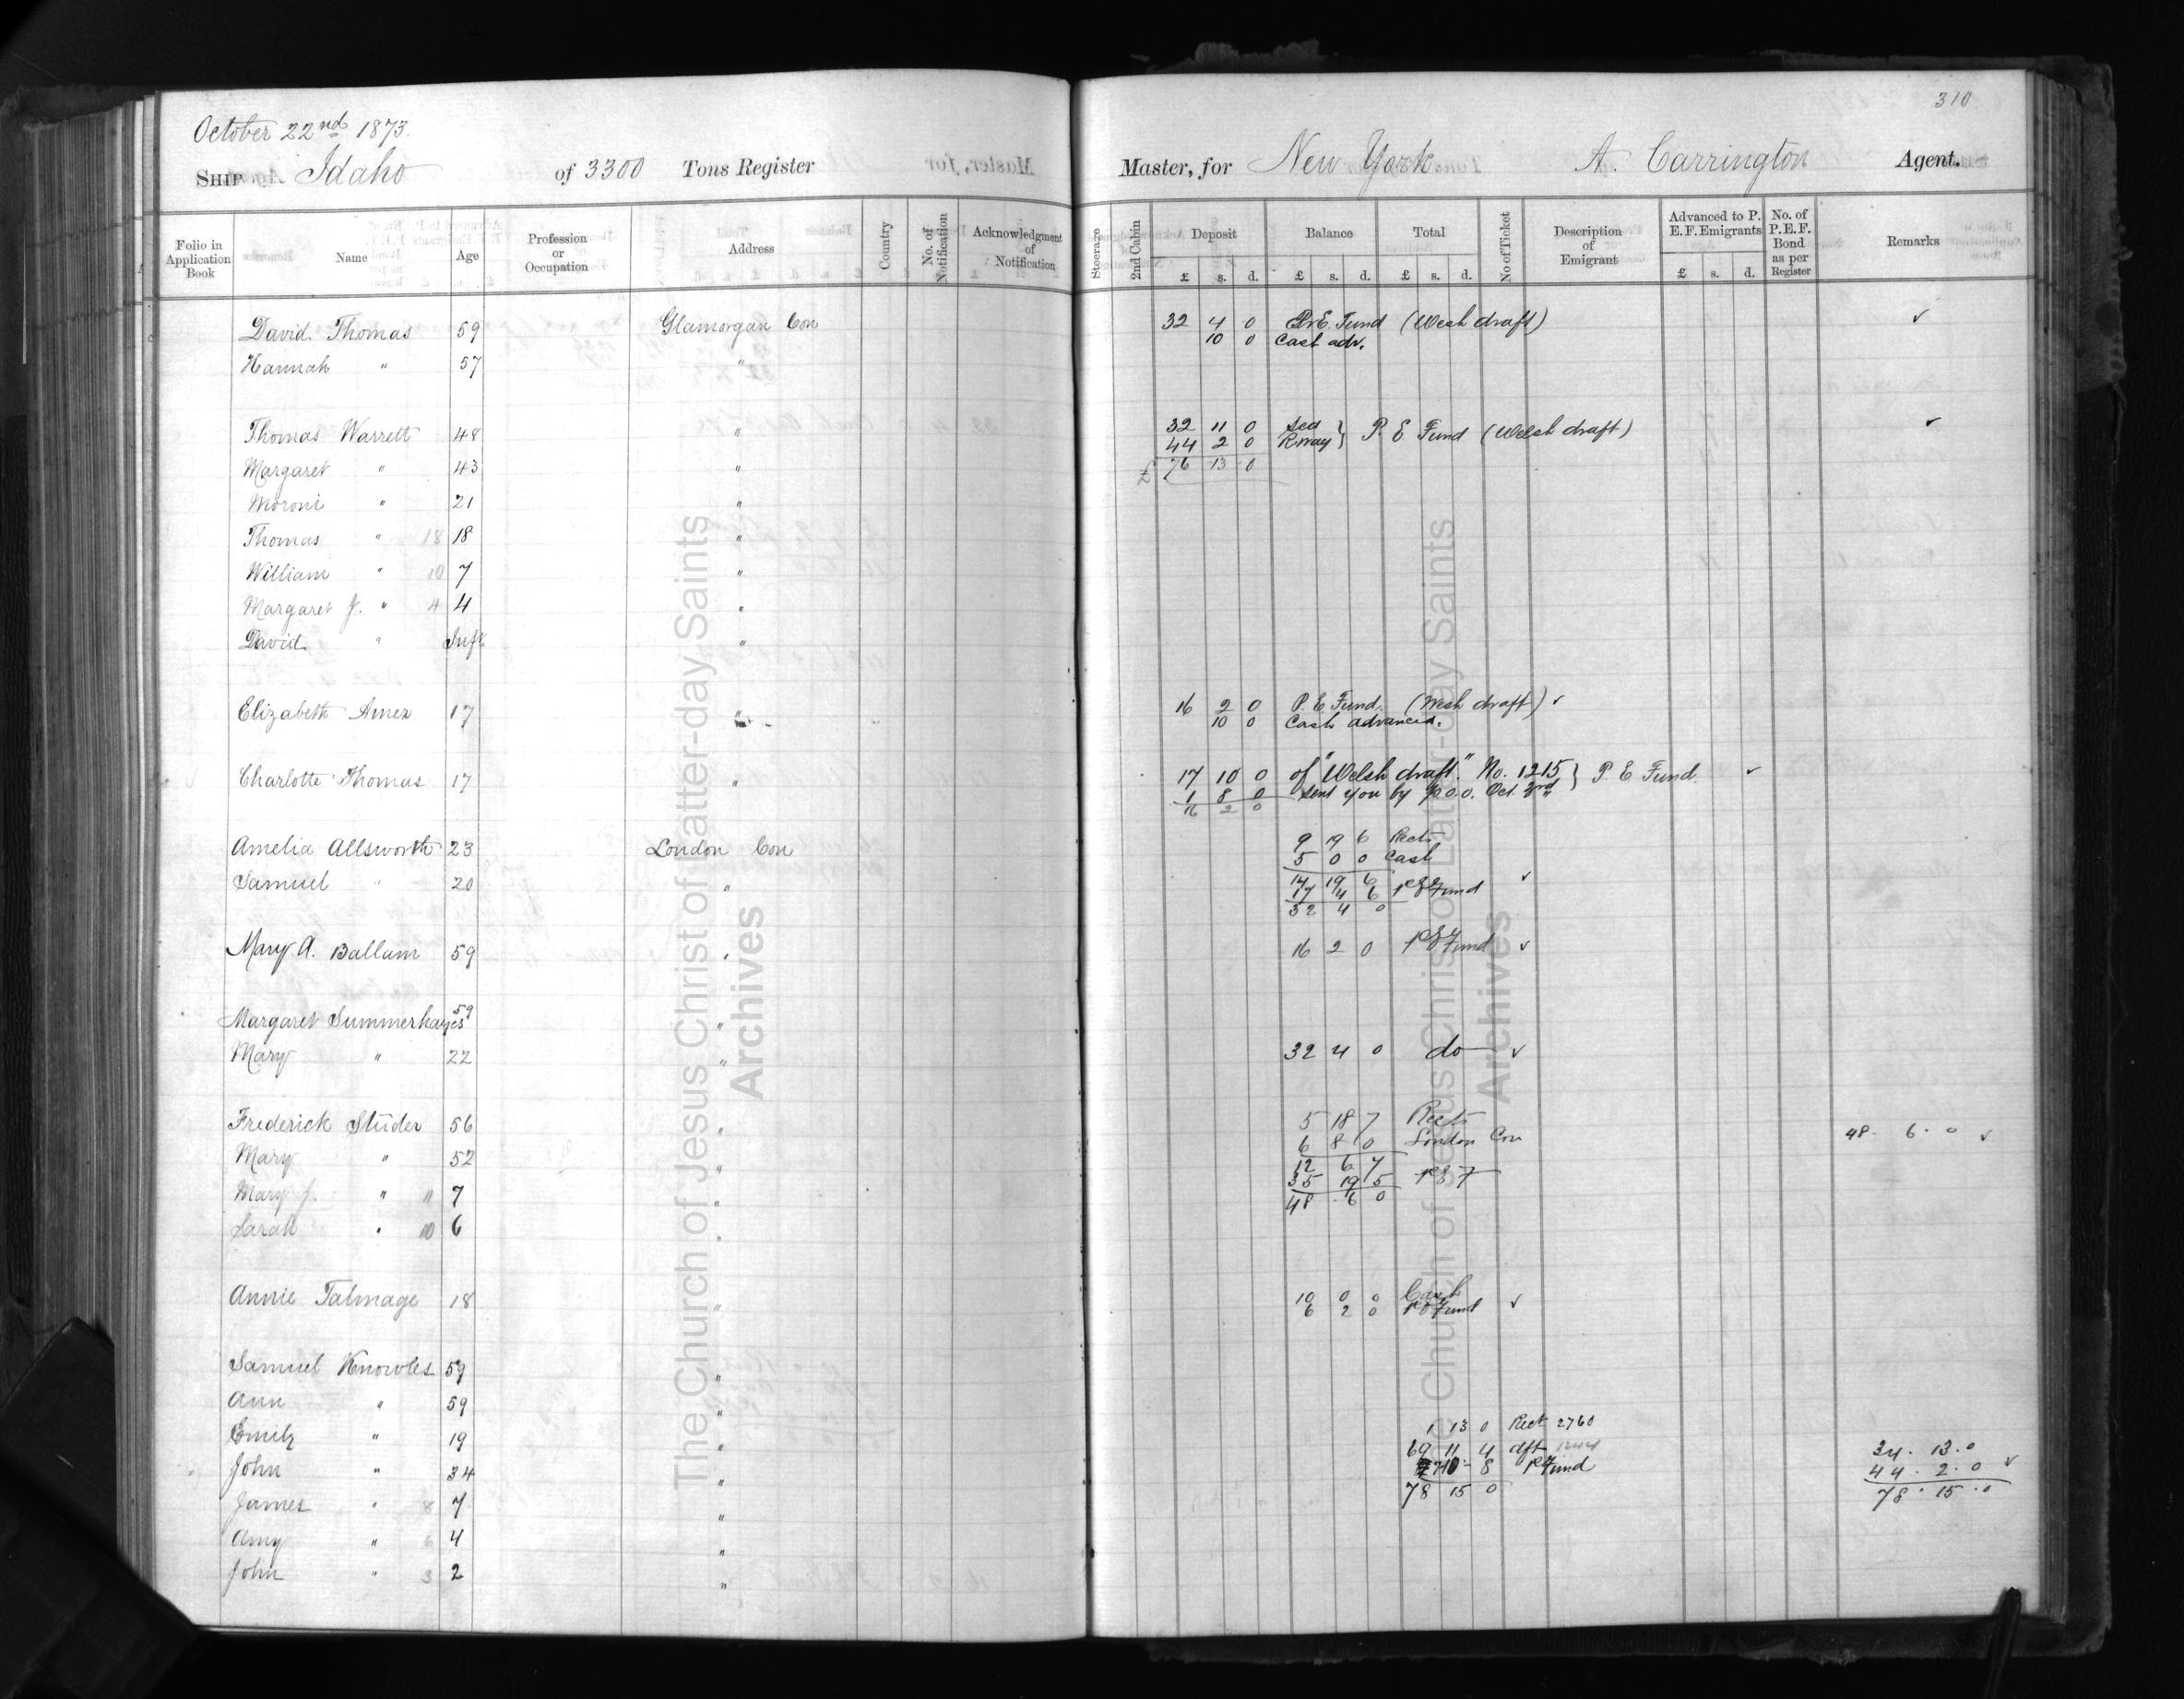 310
October 22nd 1873.
SHIP Idaho of 3300 Tons Register Master, for New York A. Carrington Agent.
Folio in Application Book Name Age Profession or Occupation Address Country No. of Notification Acknowledgment of Notification Steerage 2nd Cabin Deposit Balance Total No of Ticket Description of Emigrant Advanced to P. E. F. Emigrants No. of P. E. F. Bond as per Register Remarks
£ s. d. £ s. d. £ s. d. £ s. d.
David Thomas 59 Glamorgan Con 32 4 0 P.E. Fund (Welsh draft) ✓
10 0 Cash adv.
Hannah " 57 "
Thomas Warrett 48 " 32 11 0 Sea } P. E Fund (Welsh draft) ✓
44 2 0 R.way
Margaret " 43 " £ 76 13 0
Moroni " 21 "
Thomas " 18 18 "
William " 10 7 "
Margaret J. " 4 4 "
David " Inft "
Elizabeth Amez 17 " 16 2 0 P. E. Fund. (Welsh draft) ✓
10 0 Cash advanced.
Charlotte Thomas 17 " 17 10 0 of "Welsh draft." No. 1215 } P. E Fund. ✓
1 8 0 sent you by P.O.O. Oct. 3rd
16 2 0
Amelia Allsworth 23 London Con 9 19 6 Rect
5 0 0 Cash
Samuel " 20 " 14 19 6 ✓
17 4 6 P E Fund
32 4 0
Mary A. Ballam 59 " 16 2 0 P E Fund ✓
Margaret Summerhayes 59 "
Mary " 22 " 32 4 0 do ✓
Frederick Studer 56 " 5 18 7 Rect
6 8 0 London Con 48. 6. 0 ✓
Mary " 52 " 12 6 7
Mary J. " 11 7 " 35 19 5 P E F
48 6 0
Sarah " 10 6 "
Annie Talmage 18 " 10 0 0 Cash
6 2 0 P E Fund ✓
Samuel Knowles 59 "
Ann " 59 "
1 13 0 Rect 2760
Emily " 19 " 69 11 4 dft 34. 13. 0
John " 34 " 7 10 8 P Fund 44. 2. 0 ✓
78 15 0 78. 15. 0
James " 8 7 "
Amy " 6 4 "
John " 3 2 "
The Church of Jesus Christ of Latter-day Saints
Archives
The Church of Jesus Christ of Latter-day Saints
Archives